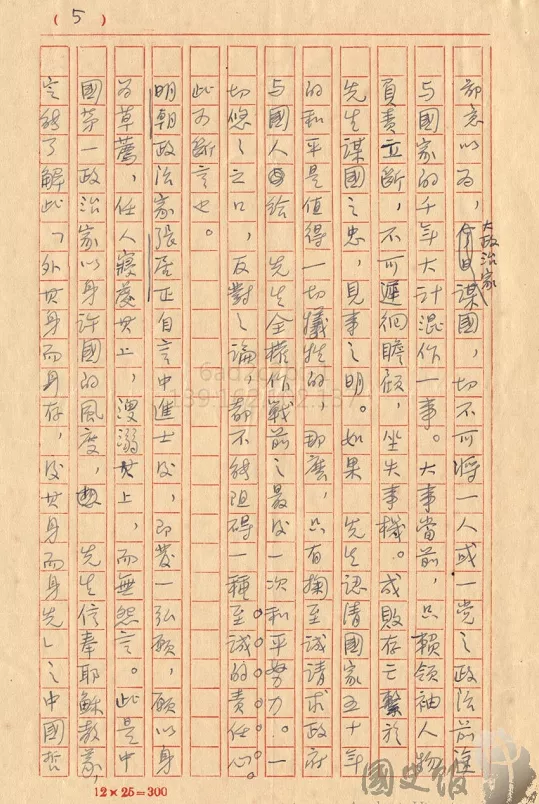 ( 5 )
鄙意以为，大政治家谋國，切不可将一人或一党之政治前途
与國家的千年大计混作一事。大事當前，只賴領袖人物
負責立断，不可遲徊瞻顧，坐失事機。成敗存亡繫於
先生謀國之忠，見事之明。如果 先生認清國家五十年
的和平是值得一切犠牲的，那麽，只有掬至诚请求政府
与國人給 先生全權作戰前之最后一次和平努力。一
切悠之之口，反對之論，都不能阻碍一種至诚的責任心。
此可断言也。
明朝政治家張居正自言中進士后，即发一弘願，願以身
为草薦，任人寝處其上，溲溺其上，而無怨言。此是中
國第一政治家以身许國的風度， 先生信奉耶穌教義，
定能了解此「外其身而身存，后其身而身先」之中國哲
12×25=300
國史館